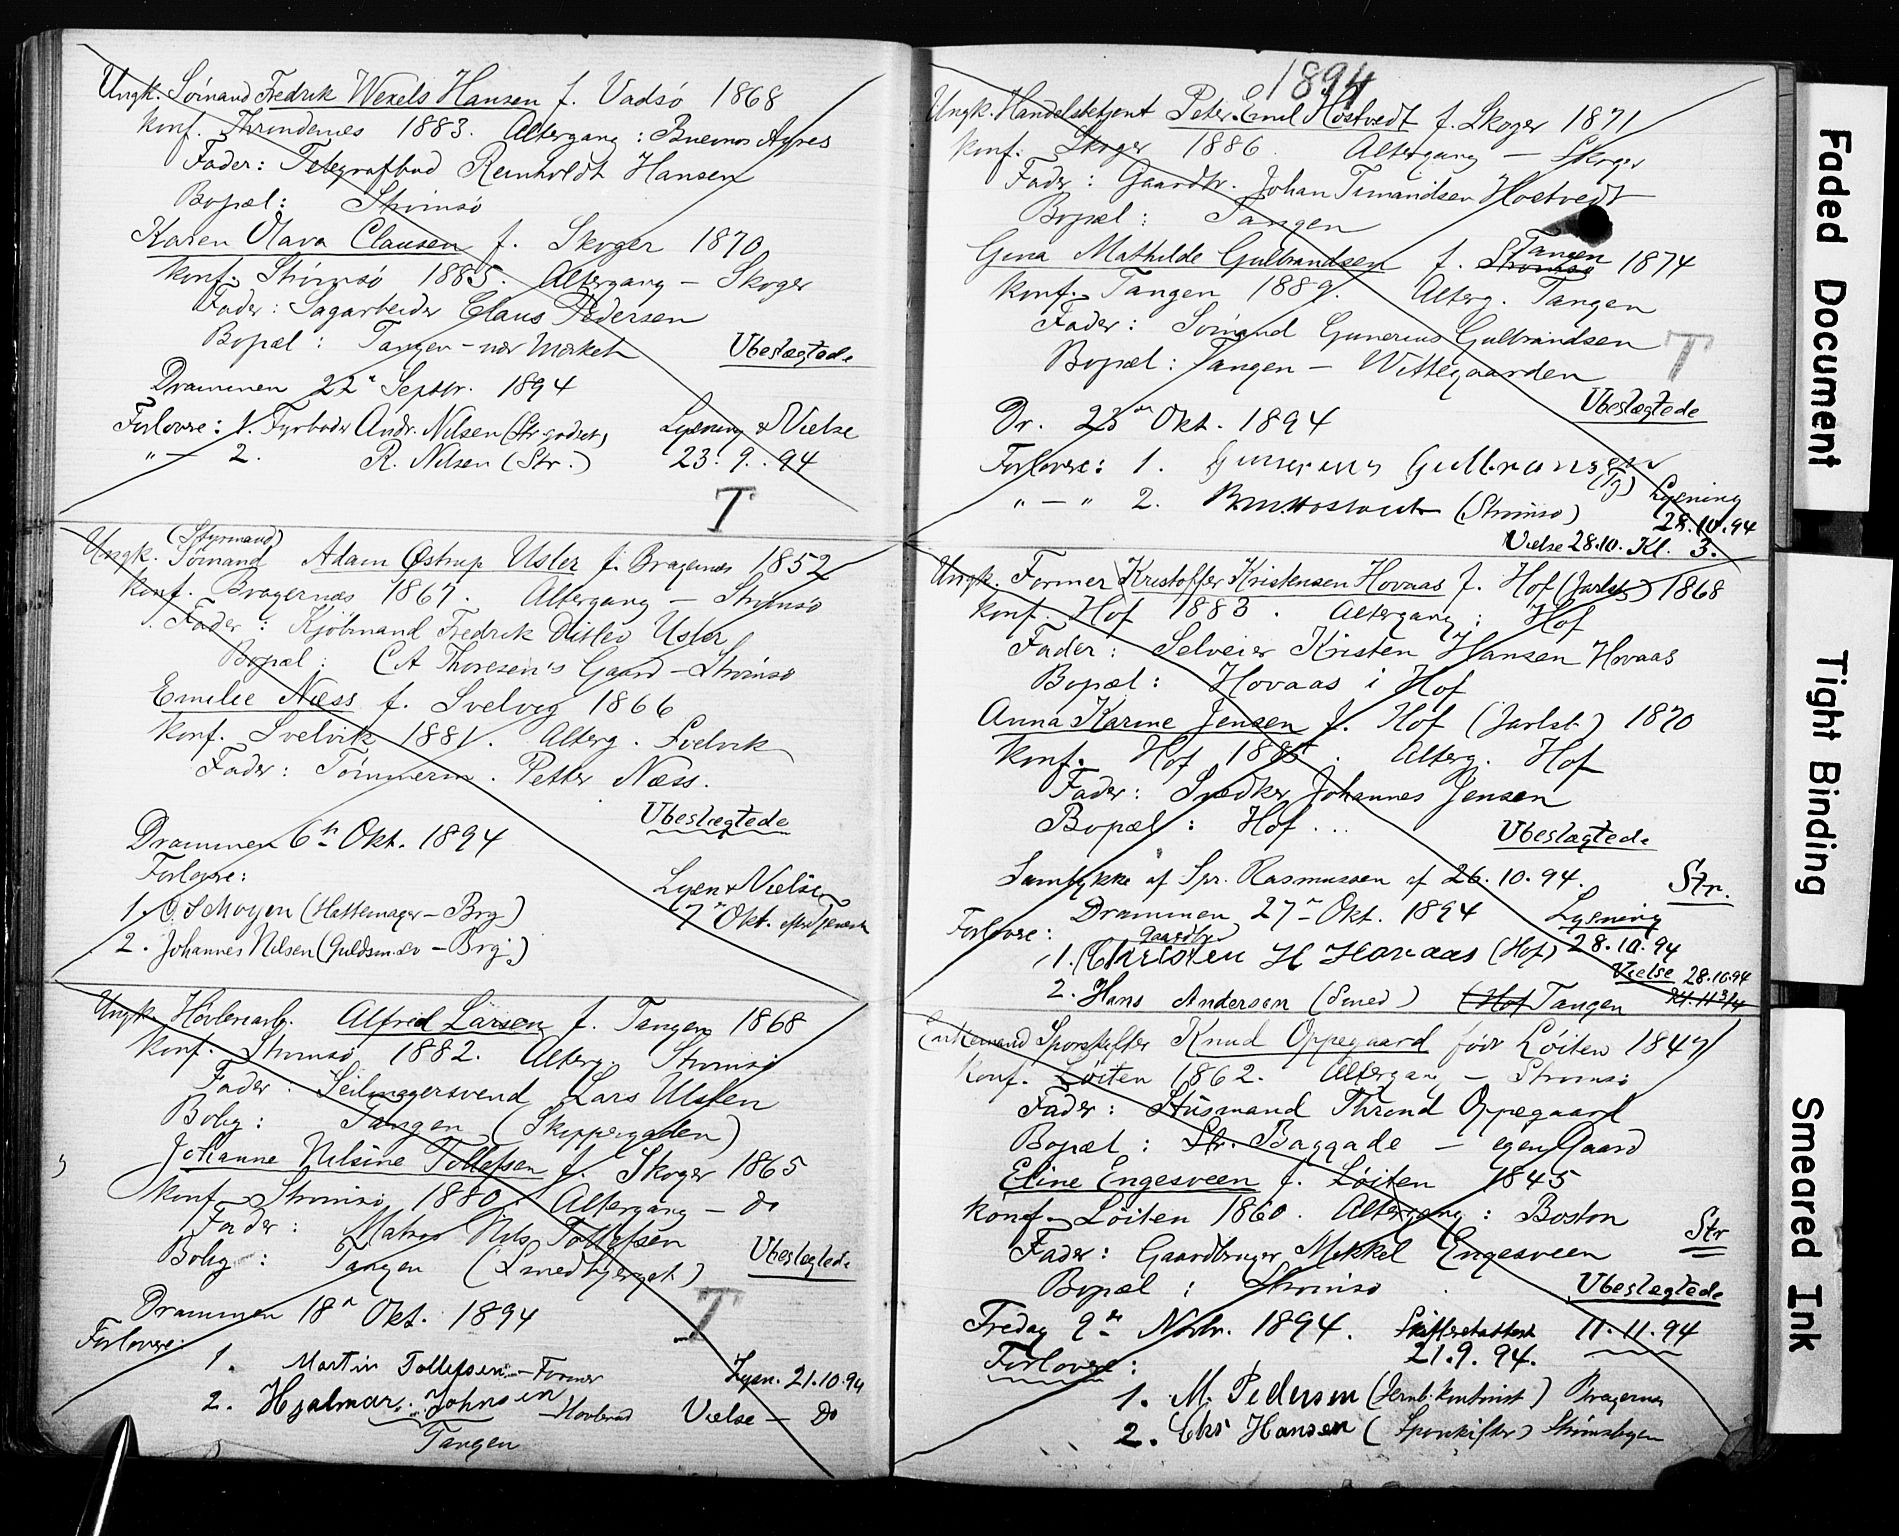 Ungk. Sømand Fredrik Wexels Hansen f. Vadsø 1868
Konf. Throndenes 1883. Altergang : Buenos Ayres
Fader : Telegrafbud Reinholdt Hansen
Bopæl : Strømsø
Karen Olava Clausen f. Skoger 1870
Konf. Strømsø 1885. Altergang – Skoger
Fader : Sagarbeider Claus Pedersen
Bopæl : Tangen – nær Mærket
Ubeslægtede
Drammen 22 Septbr. 1894
Forlovere : 1. Fyrbøder Andr. Nilsen (Str.godset)
Lysning & Vielse
" — 2. R. Nilsen (Str.)
23. 9. 94
T
(Styrmand)
Ungk. Sømand Adam Østrup Usler f. Bragernes 1852
Konf. Bragernæs 1867. Altergang – Strømsø
Fader : Kjøbmand Fredrik Ditlev Usler
Bopæl : C A Thoresen's Gaard – Strømsø
Emilie Næss f. Svelvig 1866
Konf. Svelvik 1881. Alterg. Svelvik
Fader : Tømmerm. Petter Næss.
Ubeslægtede
Drammen 6te Okt. 1894
Forlovere :
Lysn & Vielse
1. Moyen (Hattemager – Brg)
7 Okt. efter
2. Johannes Nilsen (Guldsmed – Brg.)
Ungk. Høvleriarb. Alfred Larsen f. Tangen 1868
Konf. Strømsø 1882. Alterg. Strømsø
Fader : Seilmagersvend Lars Ulsten
Bolig : Tangen (Skippergaden)
Johanne Nilsine Tollefsen f. Skoger 1865
Konf. Strømsø 1880. Altergang – do
Fader : Matros Nils Tollefsen
Bolig : Tangen (Smedbjerget)
Ubeslægtede
Drammen 18 Okt. 1894
T
Forlovere :
1. Martin Tollefsen – Former
Lysn. 21.10.94
2. Hjalmar Johnsen
Vielse – Do
Tangen
1894
Ungk. Handelsbetjent Peter Emil Hostvedt f. Skoger 1871
Konf. Skoger 1886. Altergang – Skoger
Fader : Gaardbr. Johan Hostvedt
Bopæl : Tangen
Tangen
Gina Mathilde Gulbrandsen f. Strømsø 1874
Konf. Tangen 1889. Alterg. Tangen
Fader : Sømand Gunerius Gulbrandsen
T
Bopæl : Tangen – Wittegaarden
Ubeslægtede
Dr. 23 Okt. 1894
Forlovere : 1. Gunerius Gulbransen
(Tg) Lysning
" — " 2. (Strømsø)
28.10.94
Vielse 28.10. Kl. 3.
Ungk. Former Kristoffer Kristensen Hovaas f. Hof (Jarlsb.) 1868
Konf. Hof 1883. Altergang : Hof
Fader : Selveier Kristen Hansen Hovaas
Bopæl : Hovaas i Hof
Anna Karine Jensen f. Hof (Jarlsb.) 1870
Konf. Hof 1885. Alterg. Hof
Fader : Snedker Johannes Jensen
Bopæl : Hof ...
Ubeslægtede
Samtykke af Spr. Rasmussen af 26.10.94.
Str.
Drammen 27 Okt. 1894
Lysning
Forlovere :
Gaardbr.
28.10.94
1. Christen H Hovaas (Hof)
Vielse 28.10.94
2. Hans Andersen (Smed) (Hof Tangen
Kl. 11 3/4
Enkemand Sporskifter Knud Oppegaard født Løiten 1847
Konf. Løiten 1862. Altergang – Strømsø
Fader : Husmand Thrond Oppegaard
Bopæl : Str. Baggade – egen Gaard
Eline Engesveen f. Løiten 1845
Konf. Løiten 1860. Altergang : Boston
Str
Fader : Gaardbruger Mikkel Engesveen
Bopæl : Strømsø
Ubeslægtede
Fredag 9 Novbr. 1894. Skifteretsattest 11.11.94
21.9.94.
Forlovere :
1. M. Pedersen Bragernes
2. Chr Hansen (Sporskifter)
Faded Document
Tight Binding
Smeared Ink